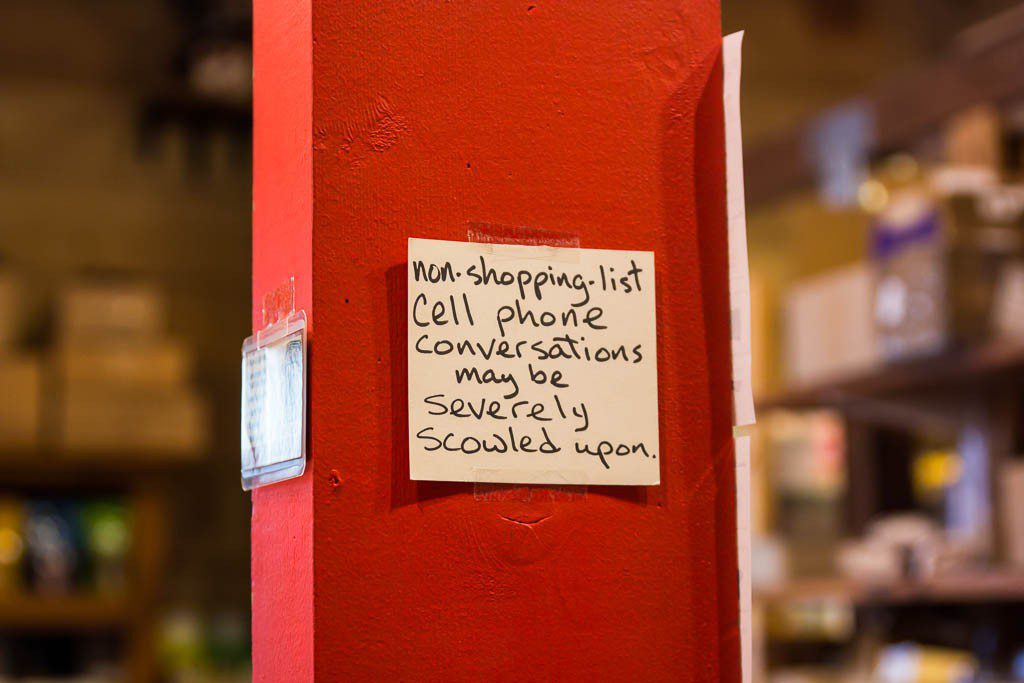 non-shopping-list
Cell phone
conversations
may be
severely
scowled upon.